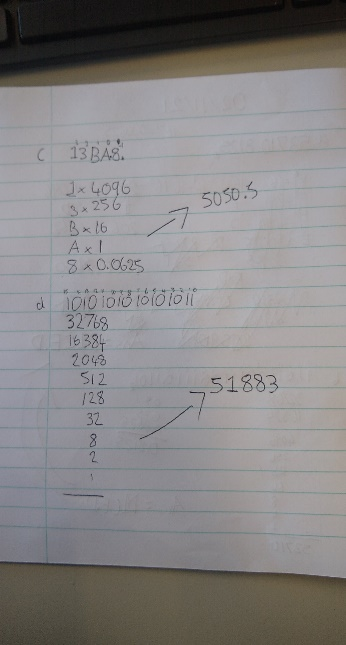 c 13BA8.
1 × 4096
3 × 256
B × 16
A × 1
8 × 0.0625
5050.5
d 1010101010101011
32768
16384
2048
512
128
32
8
2
1
51883